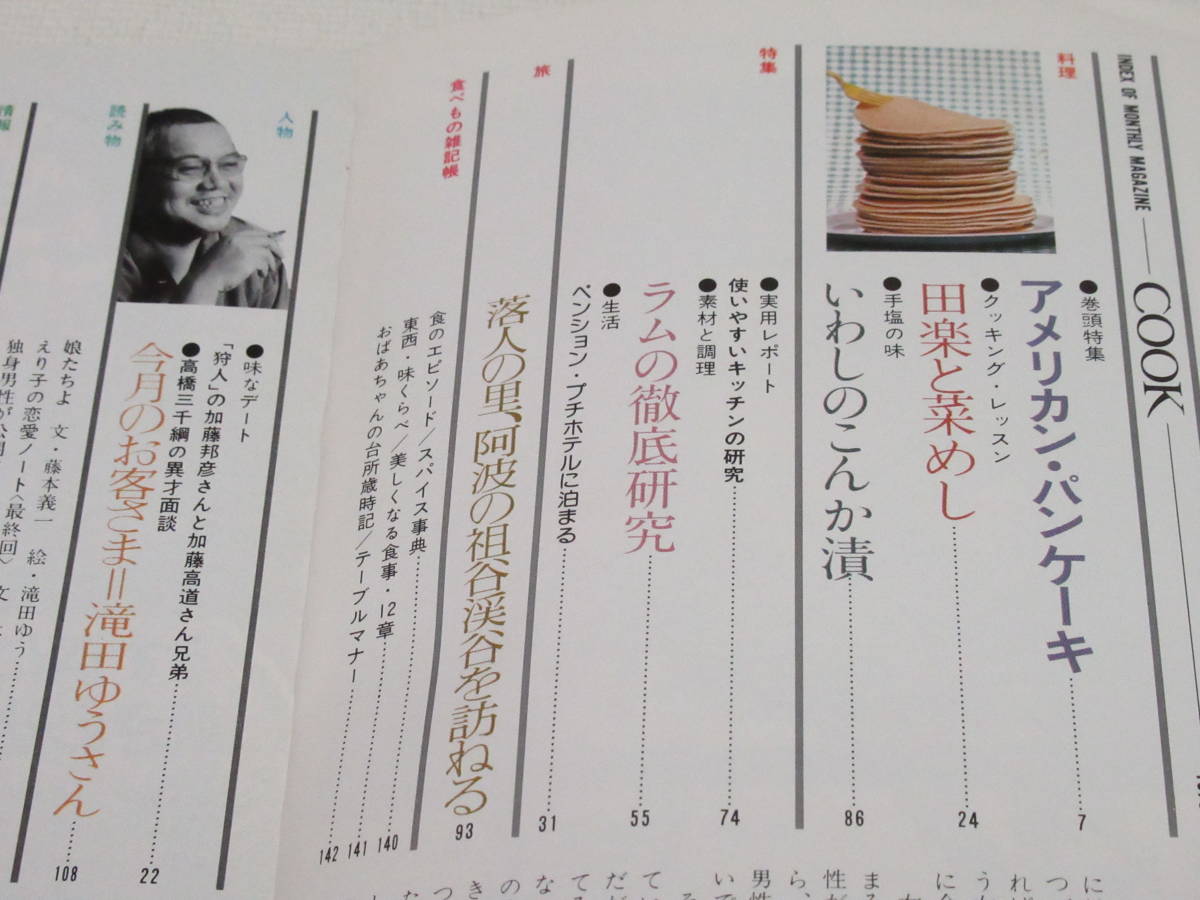 INDEX OF MONTHLY MAGAZINE
COOK
料理
●巻頭特集
アメリカン・パンケーキ
7
●クッキング・レッスン
田楽と菜めし
24
●手塩の味
いわしのこんか漬
86
特集
●実用レポート
使いやすいキッチンの研究
74
●素材と調理
ラムの徹底研究
55
●生活
ペンション・プチホテルに泊まる
31
旅
落人の里、阿波の祖谷渓谷を訪ねる
93
食べもの雑記帳
食のエピソード/スパイス事典
140
東西・味くらべ/美しくなる食事・12章
141
おばあちゃんの台所歳時記/テーブルマナー
142
人物
●味なデート
「狩人」の加藤邦彦さんと加藤高道さん兄弟
22
●高橋三千綱の異才面談
今月のお客さま=滝田ゆうさん
108
読み物
娘たちよ 文・藤本義一 絵・滝田ゆう
えり子の恋愛ノート〈最終回〉 文
独身男性が
情報